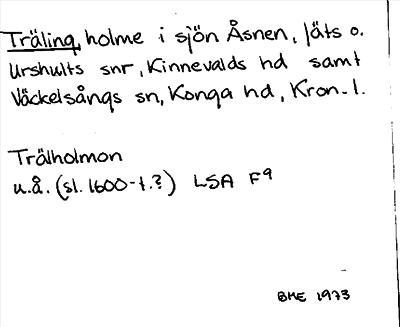 Träling, holme i sjön Åsnen, Jäts o.
Urshults snr, Kinnevalds hd samt
Väckelsångs sn, Konga hd, Kron. l.
Trälholmon
u.å. (sl. 1600-t.?) LSA F9
BME 1973